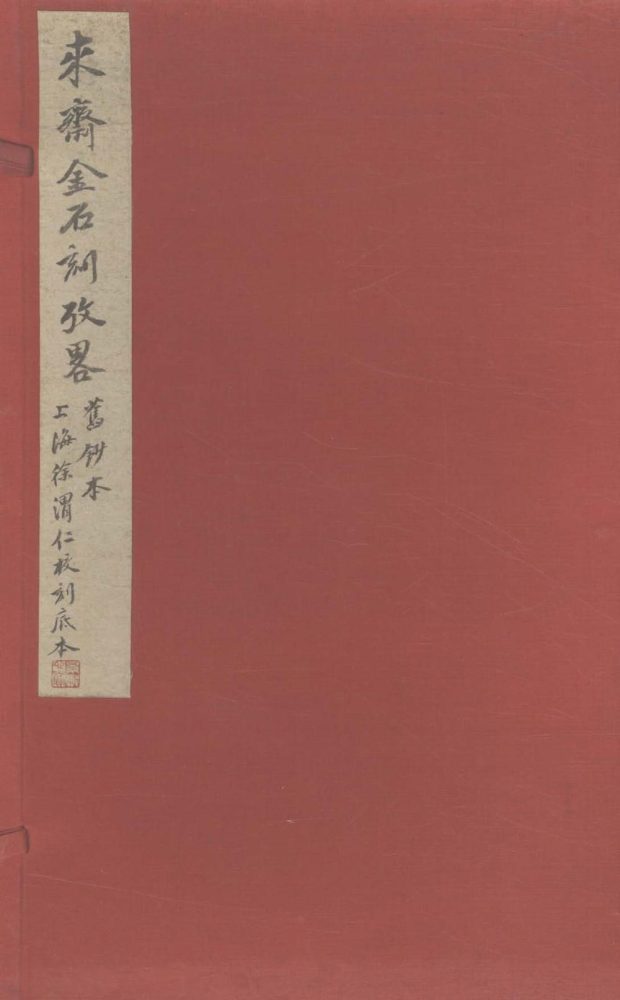 來齋金石刻攷畧
舊鈔本
上海徐渭仁校刻底本